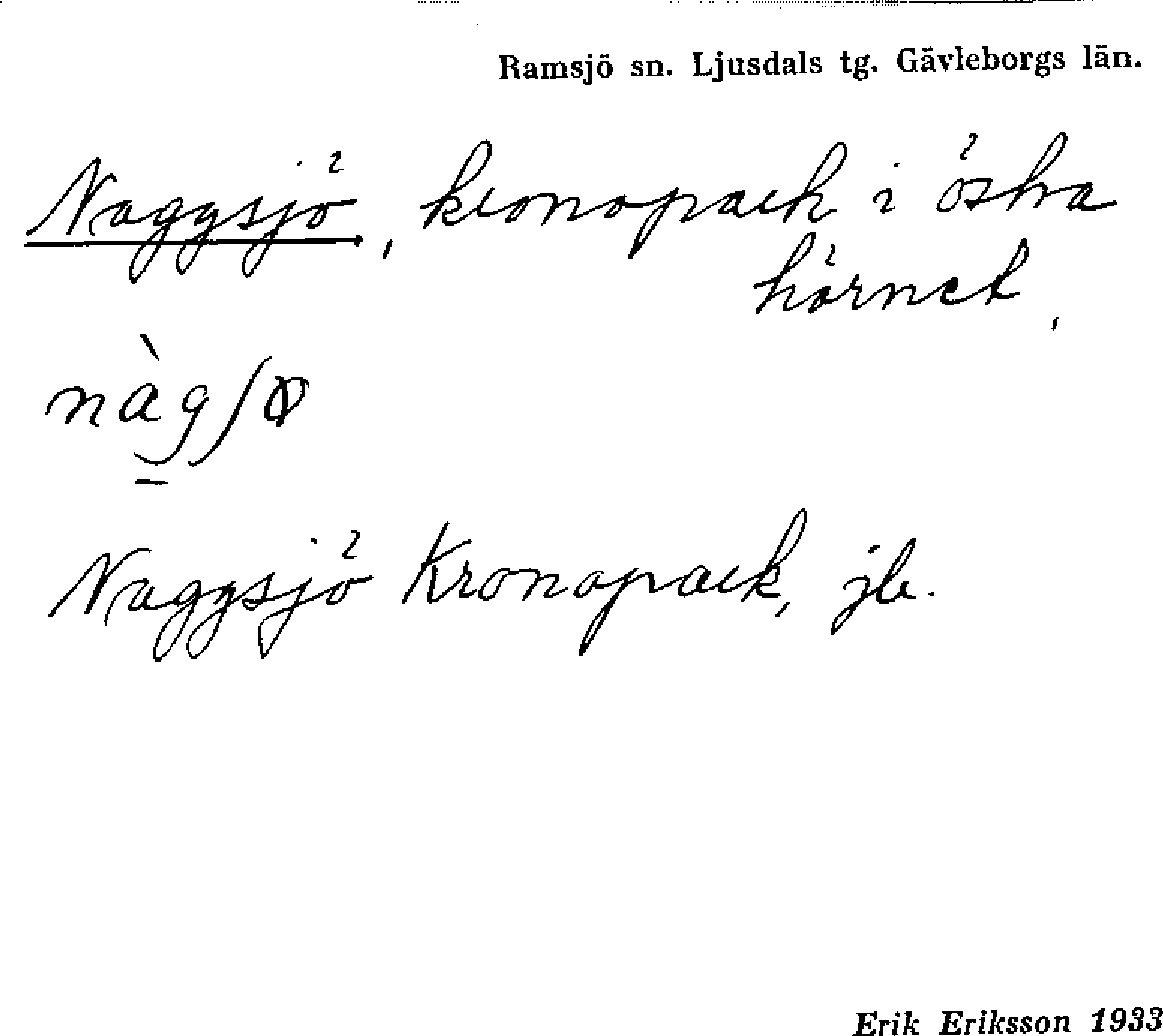 Ramsjö sn. Ljusdals tg. Gävleborgs län.
Naggsjö, kronopark i östra
hörnet,
nàgʃø
Naggsjö Kronopark, jb.
Erik Eriksson 1933